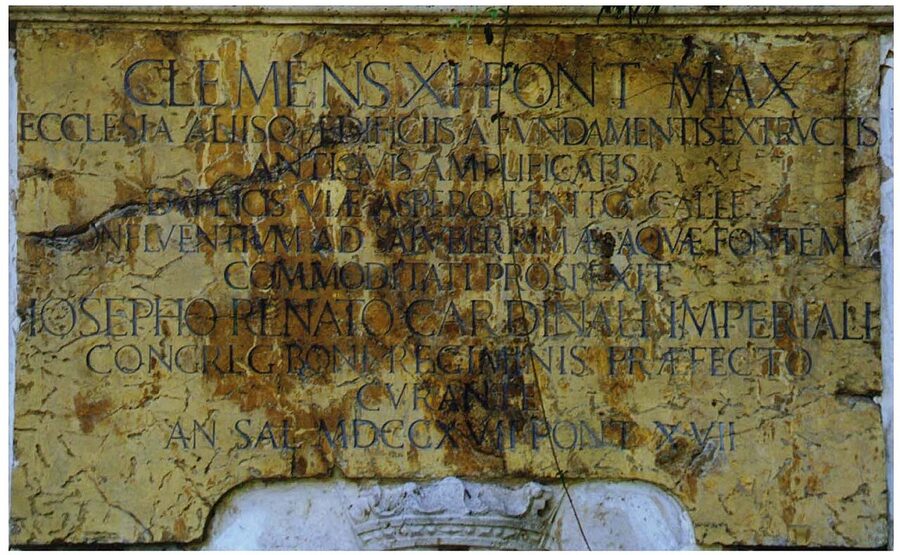 CLEMENS XI PONT MAX
ECCLESIA ALIISQ ÆDIFICIIS A FVNDAMENTIS EXTRVCTIS
ANTIQVIS AMPLIFICATIS
DVPLICIS VIÆ ASPERO LENITO CALLE
CONFLVENTIVM AD SALVBERRIMÆ AQVÆ FONTEM
COMMODITATI PROSPEXIT
IOSEPHO RENATO CARDINALI IMPERIALI
CONGREG BONI REGIMINIS PRÆFECTO
CVRANTE
AN SAL MDCCXVII PONT XVII